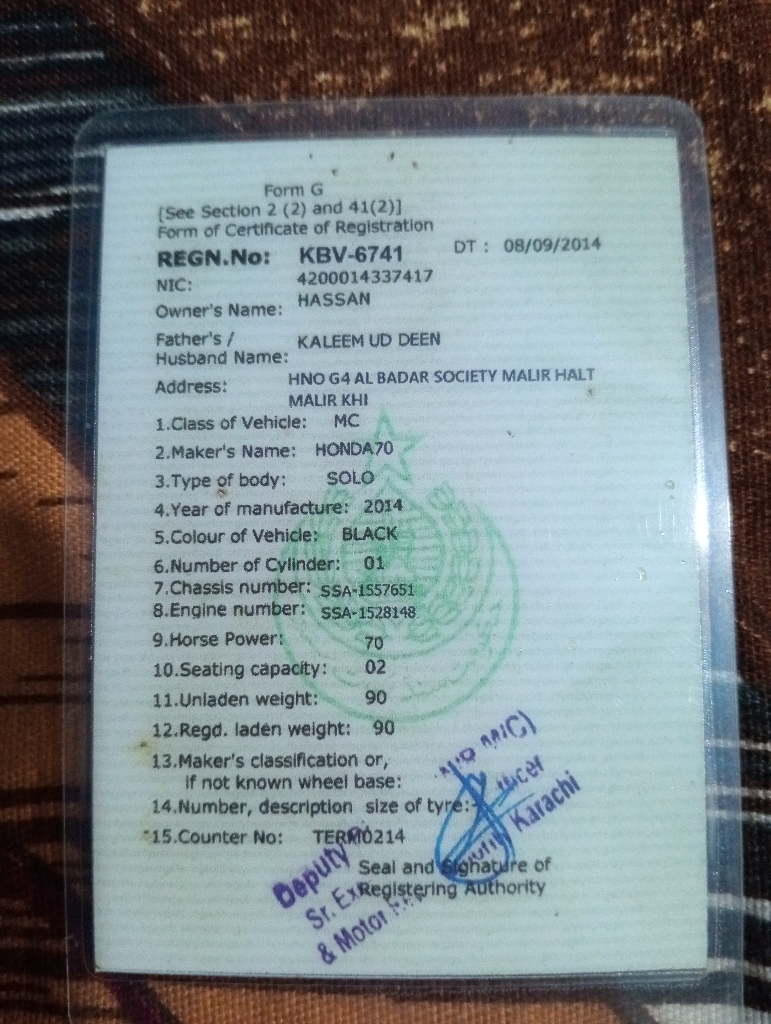 Form G
[See Section 2 (2) and 41(2)]
Form of Certificate of Registration
REGN.No: KBV-6741 DT : 08/09/2014
NIC: 4200014337417
Owner's Name: HASSAN
Father's /
Husband Name: KALEEM UD DEEN
Address: HNO G4 AL BADAR SOCIETY MALIR HALT
MALIR KHI
1.Class of Vehicle: MC
2.Maker's Name: HONDA70
3.Type of body: SOLO
4.Year of manufacture: 2014
5.Colour of Vehicle: BLACK
6.Number of Cylinder: 01
7.Chassis number: SSA-1557651
8.Engine number: SSA-1528148
9.Horse Power: 70
10.Seating capacity: 02
11.Unladen weight: 90
12.Regd. laden weight: 90
13.Maker's classification or,
if not known wheel base:
14.Number, description size of tyre:-
15.Counter No: TERM0214
Seal and Signature of
Registering Authority
Deputy
Sr.
& Motor
Karachi